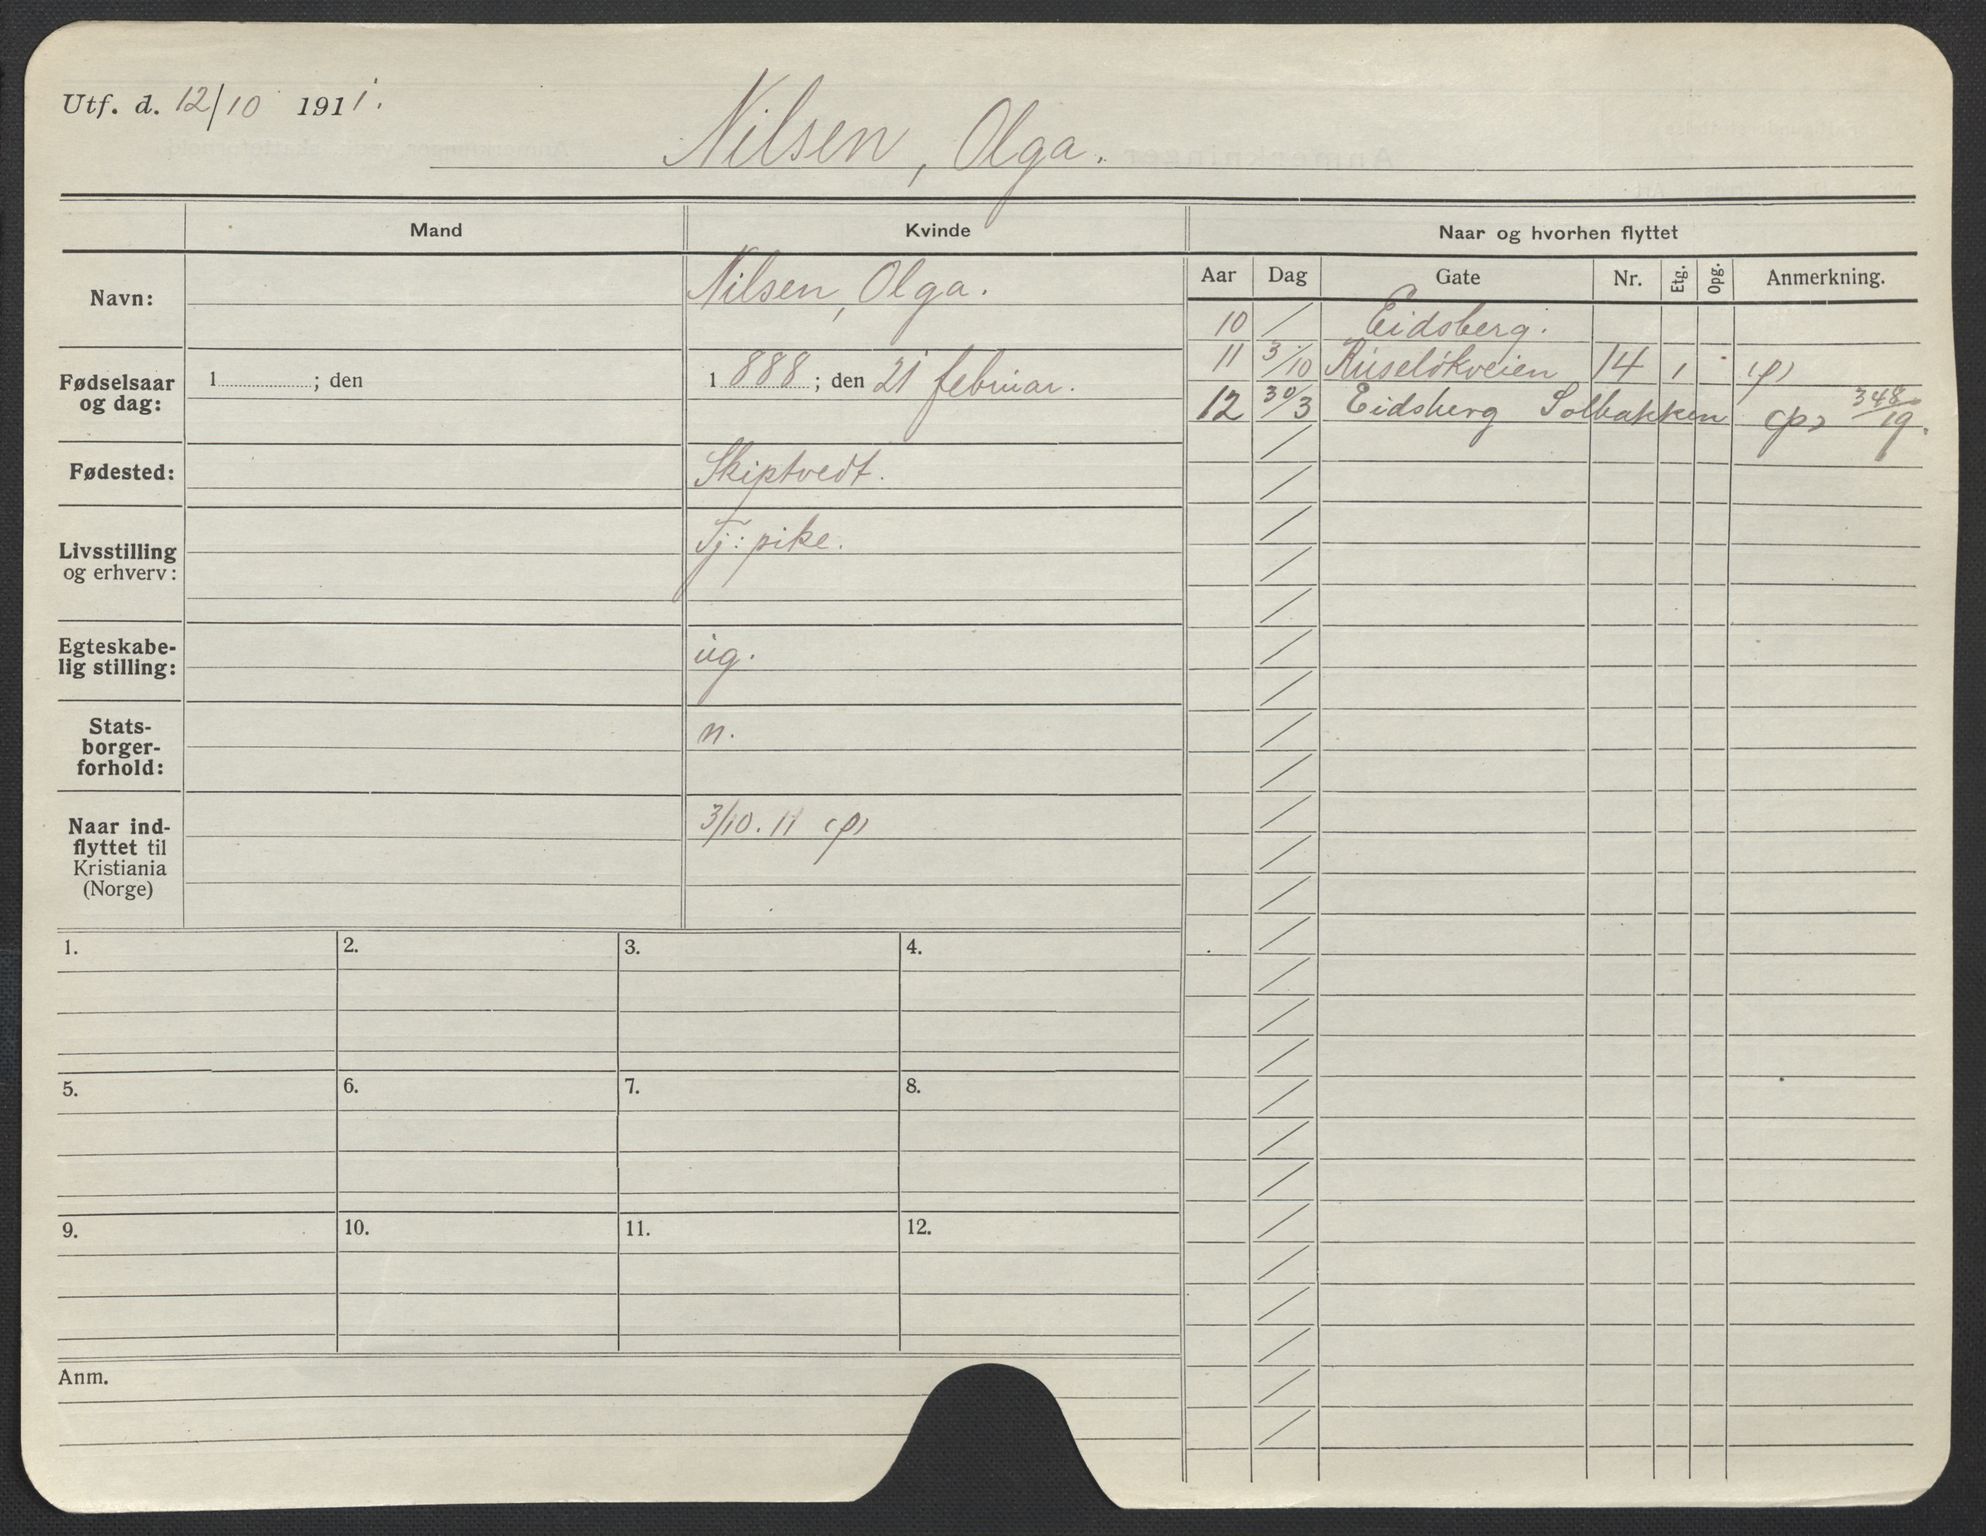 Utf. d. 12/10 1911.
Nilsen, Olga.
Mand
Kvinde
Naar og hvorhen flyttet
Aar Dag Gate Nr. Etg. Opg. Anmerkning.
Navn:
Nilsen, Olga.
Fødselsaar og dag:
1 ; den
1 888 ; den 21 februar.
Fødested:
Skiptvedt.
Livsstilling
og erhverv:
Tj: pike.
Egteskabe-
lig stilling:
ug.
Stats-
borger-
forhold:
n.
Naar ind-
flyttet til
Kristiania
(Norge)
3/10. 11 (p)
10 / Eidsberg.
11 3/10 Ruseløkveien 14 1 (p)
12 30/3 Eidsberg Solbakken (p) 348/19.
1. 2. 3. 4.
5. 6. 7. 8.
9. 10. 11. 12.
Anm.